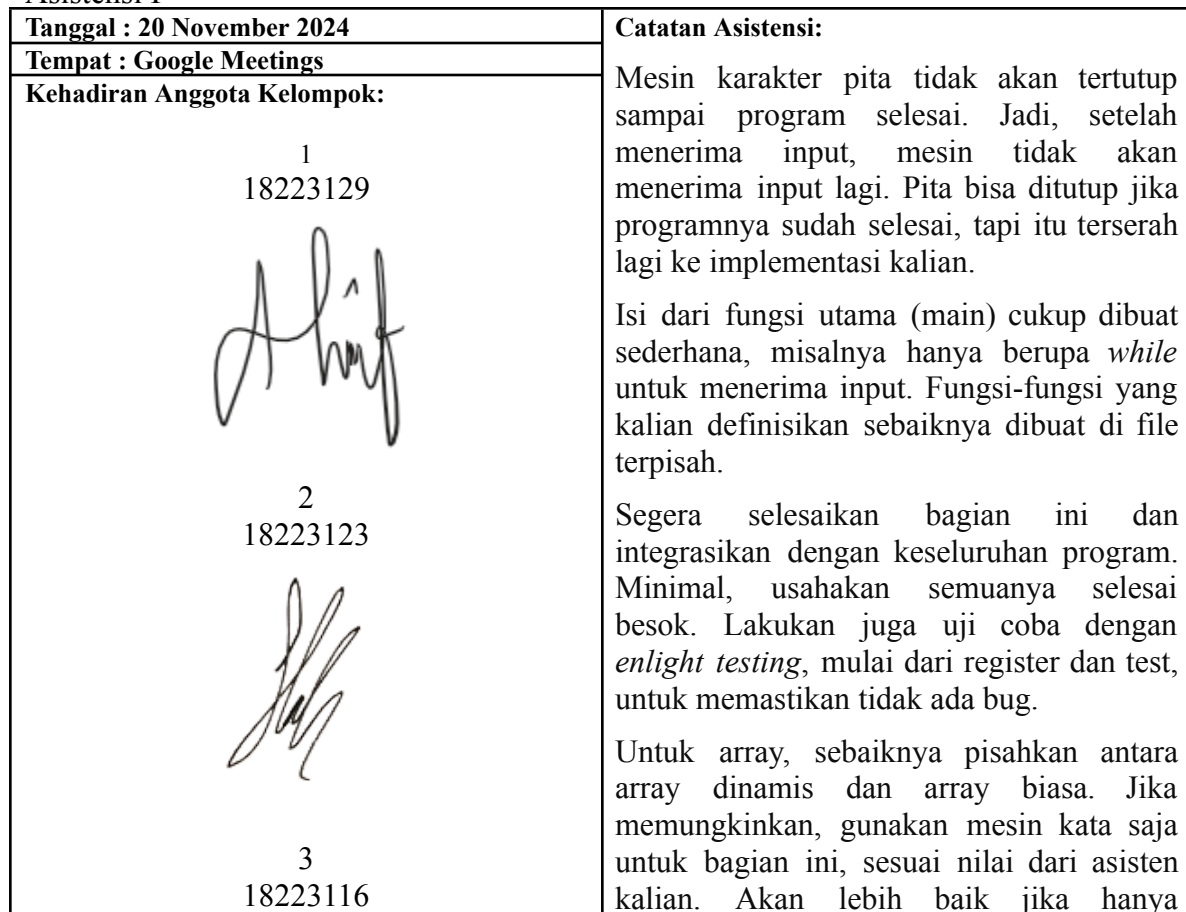 Tanggal : 20 November 2024
Tempat : Google Meetings
Kehadiran Anggota Kelompok:
1
18223129
2
18223123
3
18223116
Catatan Asistensi:
Mesin karakter pita tidak akan tertutup
sampai program selesai. Jadi, setelah
menerima input, mesin tidak akan
menerima input lagi. Pita bisa ditutup jika
programnya sudah selesai, tapi itu terserah
lagi ke implementasi kalian.
Isi dari fungsi utama (main) cukup dibuat
sederhana, misalnya hanya berupa while
untuk menerima input. Fungsi-fungsi yang
kalian definisikan sebaiknya dibuat di file
terpisah.
Segera selesaikan bagian ini dan
integrasikan dengan keseluruhan program.
Minimal, usahakan semuanya selesai
besok. Lakukan juga uji coba dengan
enlight testing, mulai dari register dan test,
untuk memastikan tidak ada bug.
Untuk array, sebaiknya pisahkan antara
array dinamis dan array biasa. Jika
memungkinkan, gunakan mesin kata saja
untuk bagian ini, sesuai nilai dari asisten
kalian. Akan lebih baik jika hanya